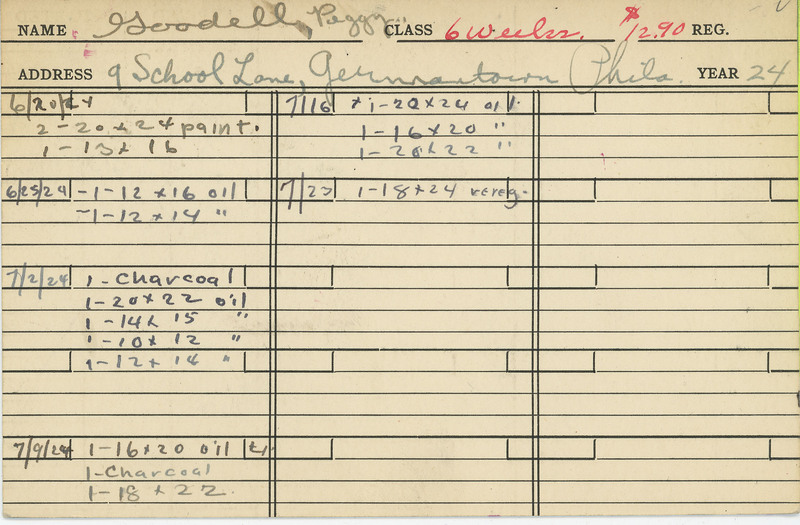 NAME Goodell, Peggy CLASS 6 Weeks. $12.90 REG.
ADDRESS 9 School Lane, Germantown Phila. YEAR 24
6/20/24
2-20x24 paint.
1-13x16
6/25/24 -1-12x16 oil
-1-12x14 "
7/2/24 1-Charcoal
1-20x22 oil
1-14x15 "
1-10x12 "
1-12x14 "
7/9/24 1-16x20 oil
1-Charcoal
1-18x22
7/16 1-20x24 oil
1-16x20 "
1-20x22 "
7/23 1-18x24 rereg.